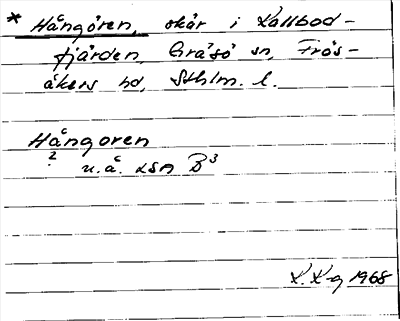 * Hångören, skär i Kallbod-
fjärden, Gräsö sn, Frös-
åkers hd, Sthlm. l.
Hångoren
? u.å. LSA B³
K. K-g 1968